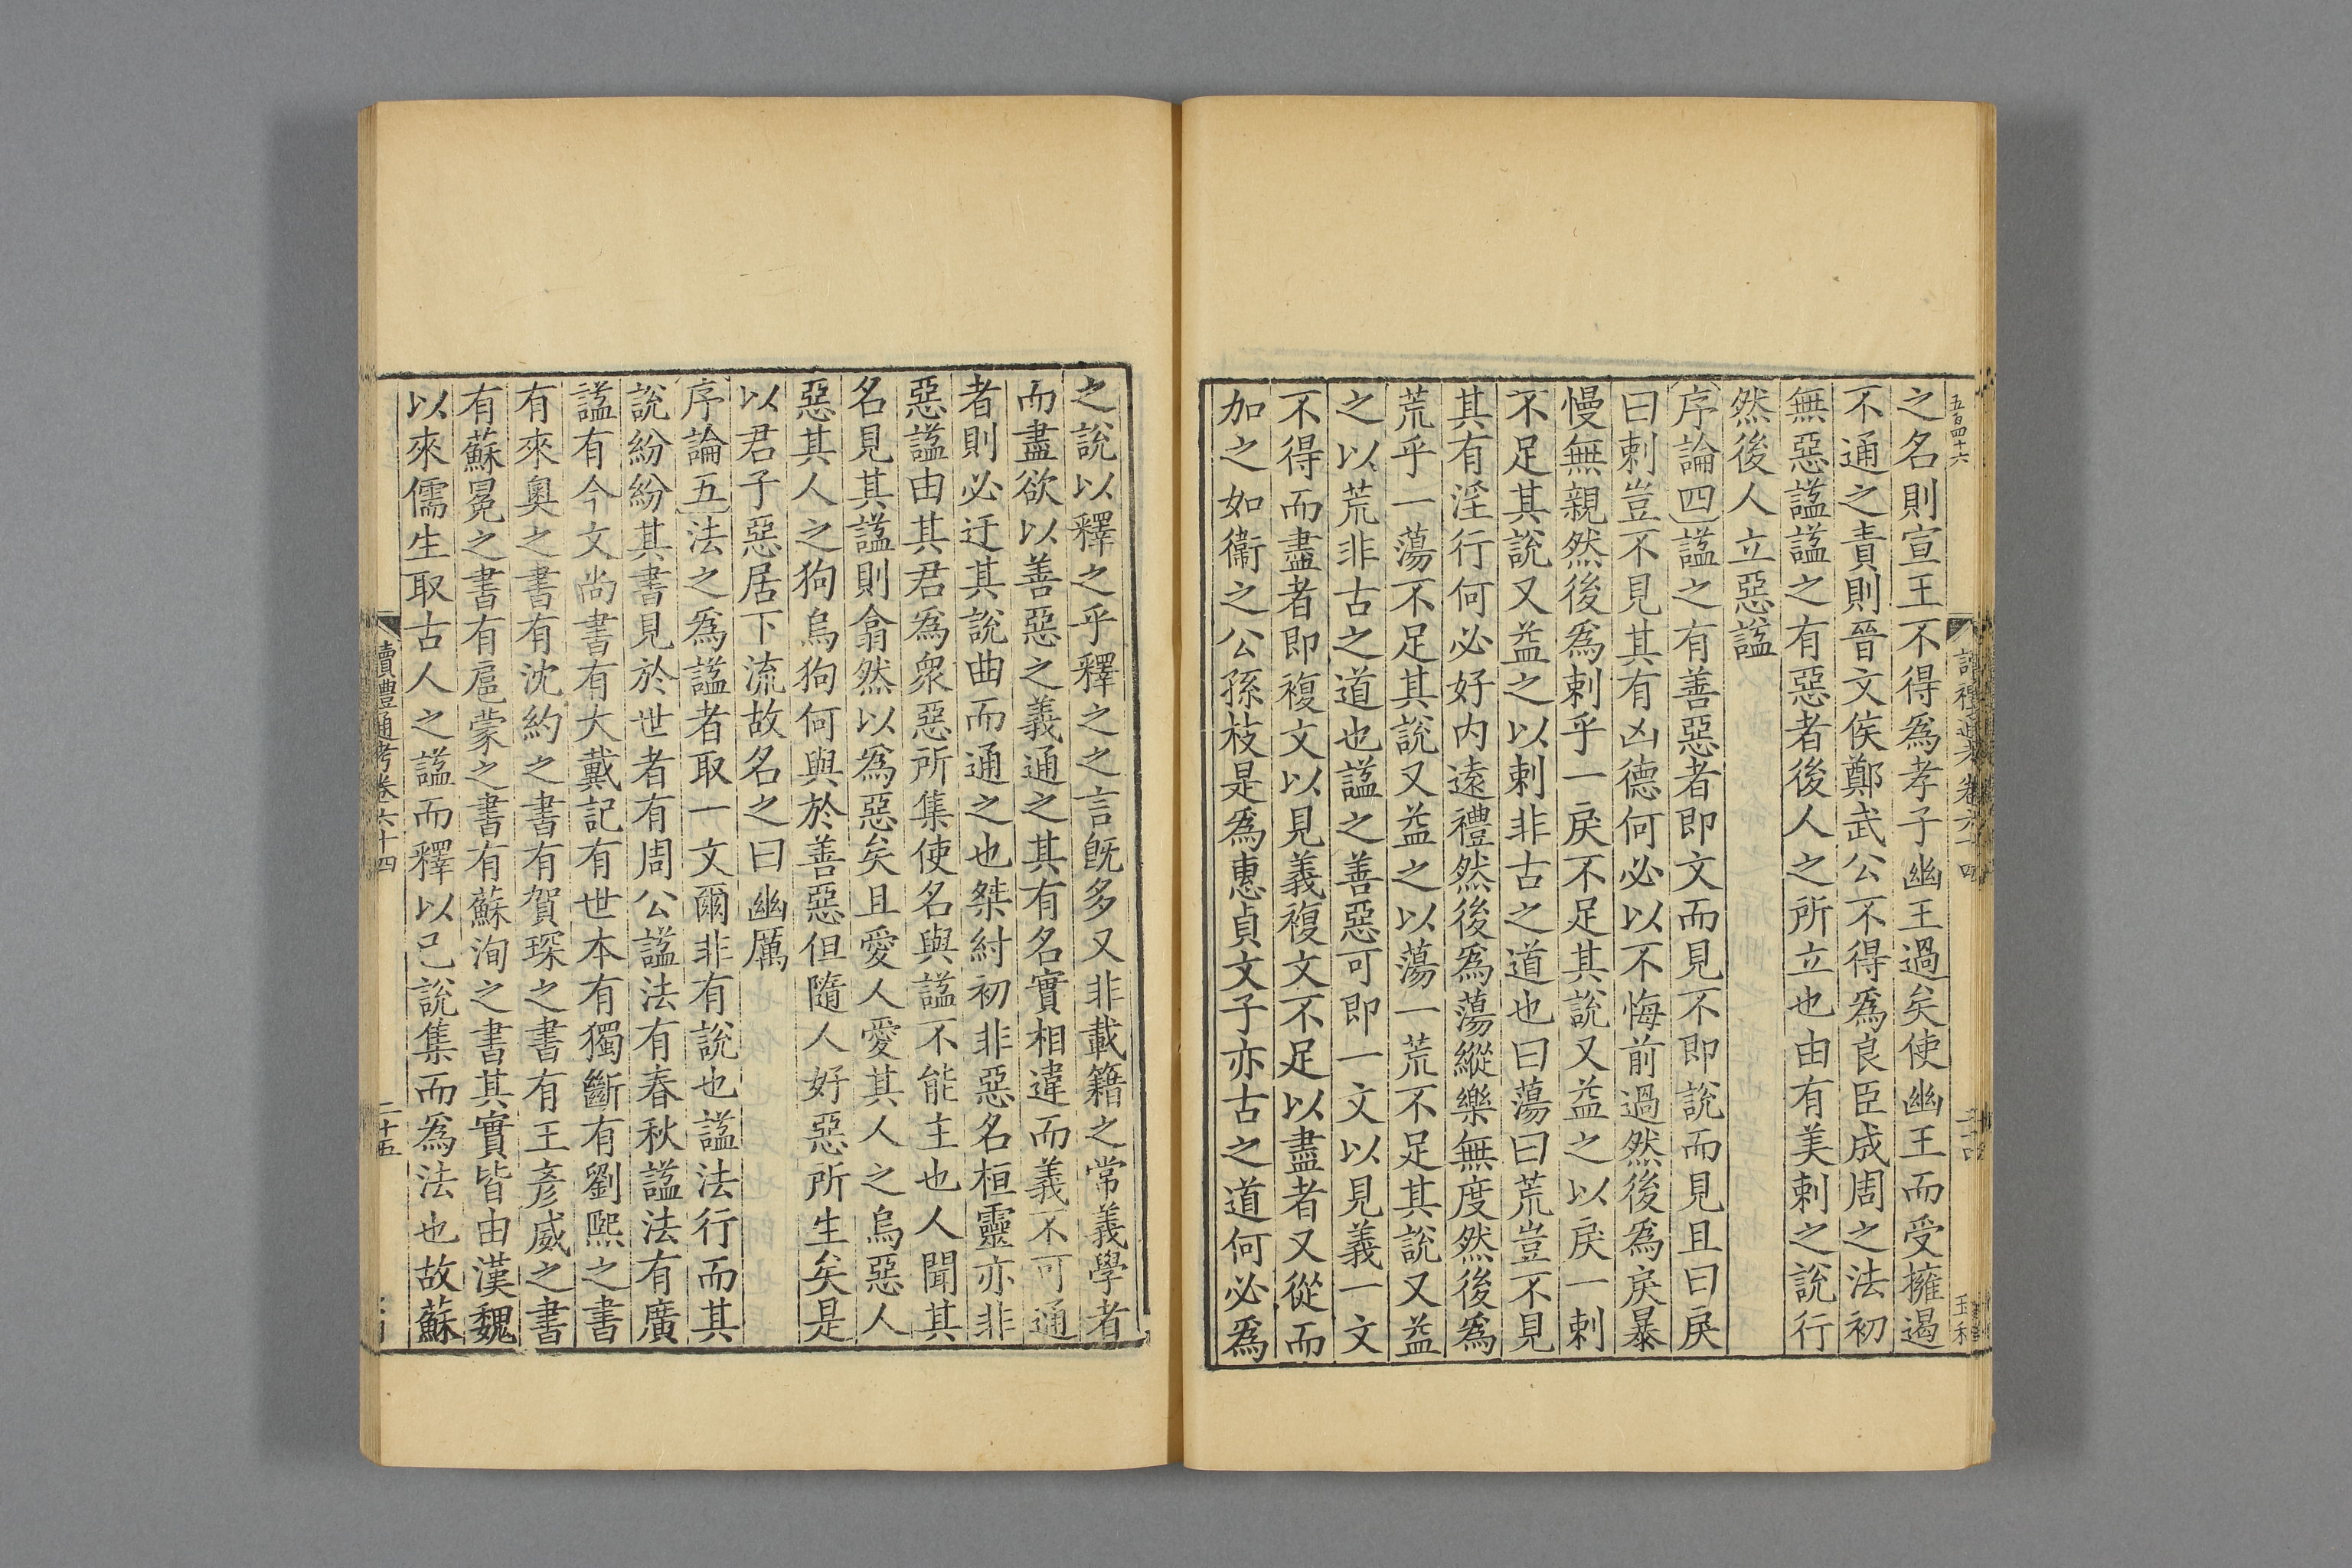 五百四十六
之名則宣王不得爲孝子幽王過矣使幽王而受擁遏
不通之責則晉文侯鄭武公不得爲良臣成周之法初
無惡諡諡之有惡者後人之所立也由有美刺之說行
然後人立惡諡
序論四諡之有善惡者即文而見不即說而見且曰戾
曰刺豈不見其有凶德何必以不悔前過然後爲戾暴
慢無親然後爲刺乎一戾不足其說又益之以戾一刺
不足其說又益之以刺非古之道也曰蕩曰荒豈不見
其有淫行何必好内遠禮然後爲蕩縱樂無度然後爲
荒乎一蕩不足其說又益之以蕩一荒不足其說又益
之以荒非古之道也諡之善惡可即一文以見義一文
不得而盡者即複文以見義複文不足以盡者又從而
加之如衞之公孫枝是爲惠貞文子亦古之道何必爲
之說以釋之乎釋之之言旣多又非載籍之常義學者
而盡欲以善惡之義通之其有名實相違而義不可通
者則必迂其說曲而通之也桀紂初非惡名桓靈亦非
惡諡由其君爲衆惡所集使名與諡不能主也人聞其
名見其諡則翕然以爲惡矣且愛人愛其人之烏惡人
惡其人之狗烏狗何與於善惡但隨人好惡所生矣是
以君子惡居下流故名之曰幽厲
序論五法之爲諡者取一文爾非有說也諡法行而其
說紛紛其書見於世者有周公諡法有春秋諡法有廣
諡有今文尚書有大戴記有世本有獨斷有劉熙之書
有來奧之書有沈約之書有賀琛之書有王彥威之書
有蘇冕之書有扈蒙之書有蘇洵之書其實皆由漢魏
以來儒生取古人之諡而釋以己說集而爲法也故蘇
讀禮通考卷六十四
二十五